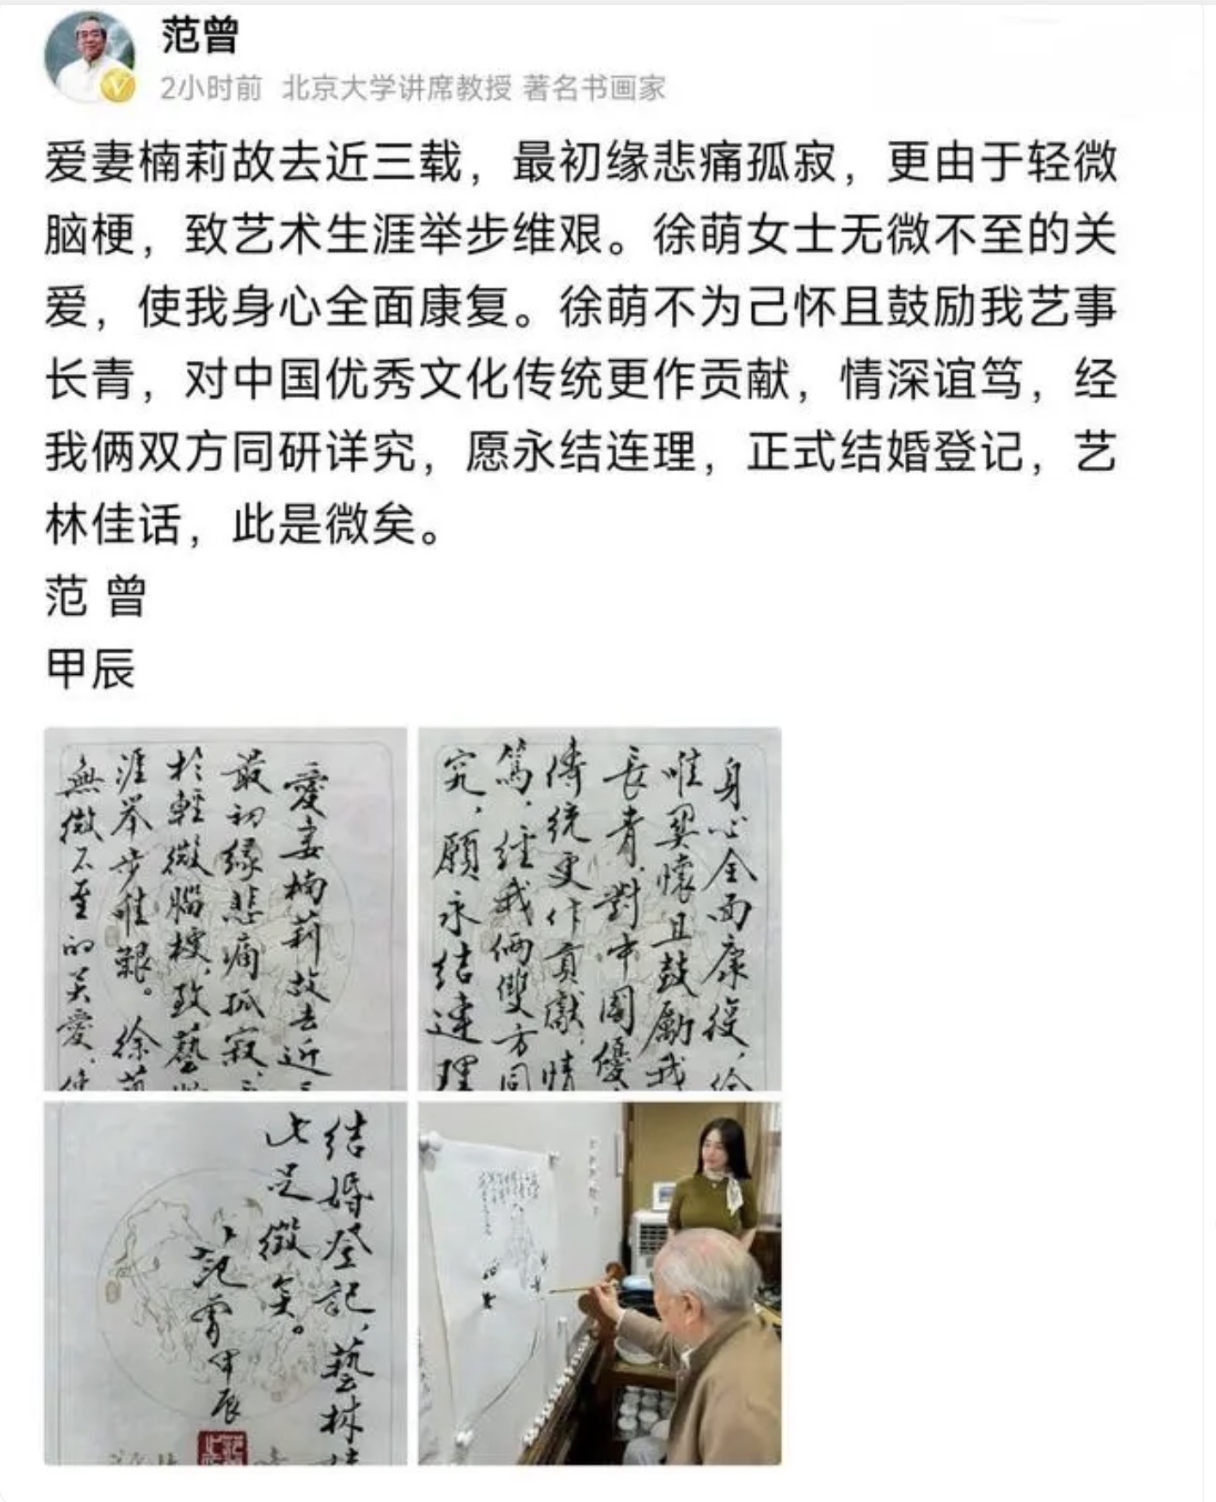 范曾
2小时前 北京大学讲席教授 著名书画家
爱妻楠莉故去近三载，最初缘悲痛孤寂，更由于轻微
脑梗，致艺术生涯举步维艰。徐萌女士无微不至的关
爱，使我身心全面康复。徐萌不为己怀且鼓励我艺事
长青，对中国优秀文化传统更作贡献，情深谊笃，经
我俩双方同研详究，愿永结连理，正式结婚登记，艺
林佳话，此是微矣。
范 曾
甲辰
愛妻楠莉故去近三
最初缘悲痛孤寂
於輕微腦梗，致藝
涯举步維艱。徐萌
無微不至的关愛，使
身心全面康復，徐
懷且鼓勵我
長青，對中國優
傳統更作貢獻，情
篤，經我倆雙方同
究，願永結連理
结婚登記，藝林
此是微矣。
范曾甲辰